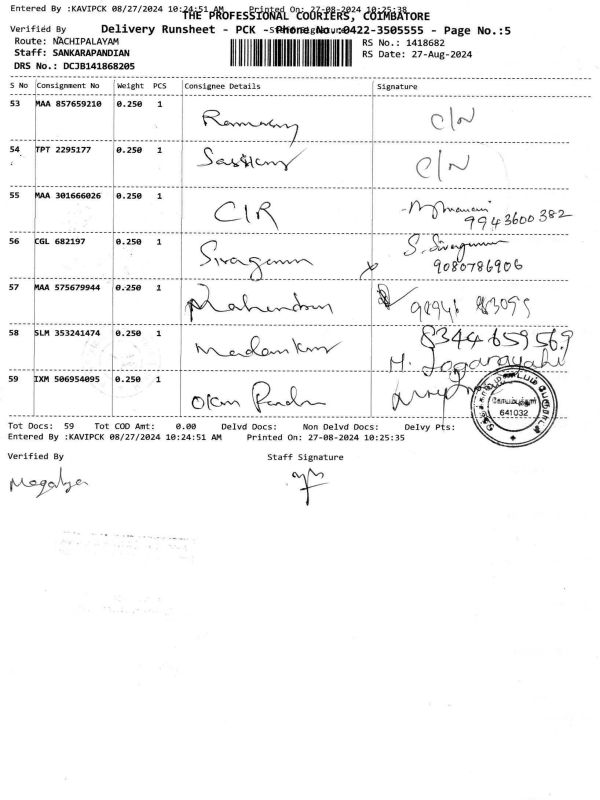 Entered By :KAVIPCK 08/27/2024 10:24:51 AM Printed On: 27-08-2024 10:25:38
THE PROFESSIONAL COURIERS, COIMBATORE
Verified By Staff Signature
Delivery Runsheet - PCK - Phone No.:0422-3505555 - Page No.:5
Route: NACHIPALAYAM RS No.: 1418682
Staff: SANKARAPANDIAN RS Date: 27-Aug-2024
DRS No.: DCJB141868205
S No Consignment No Weight PCS Consignee Details Signature
53 MAA 857659210 0.250 1 Ramasamy C/N
54 TPT 2295177 0.250 1 C/N
55 MAA 301666026 0.250 1 C/R
9943600382
56 CGL 682197 0.250 1 Sivagami S. Sivagami
9080786906
57 MAA 575679944 0.250 1 Mahendran
58 SLM 353241474 0.250 1 Madankumar 8344659569
59 IXM 506954095 0.250 1
641032
Tot Docs: 59 Tot COD Amt: 0.00 Delvd Docs: Non Delvd Docs: Delvy Pts:
Entered By :KAVIPCK 08/27/2024 10:24:51 AM Printed On: 27-08-2024 10:25:35
Verified By Staff Signature